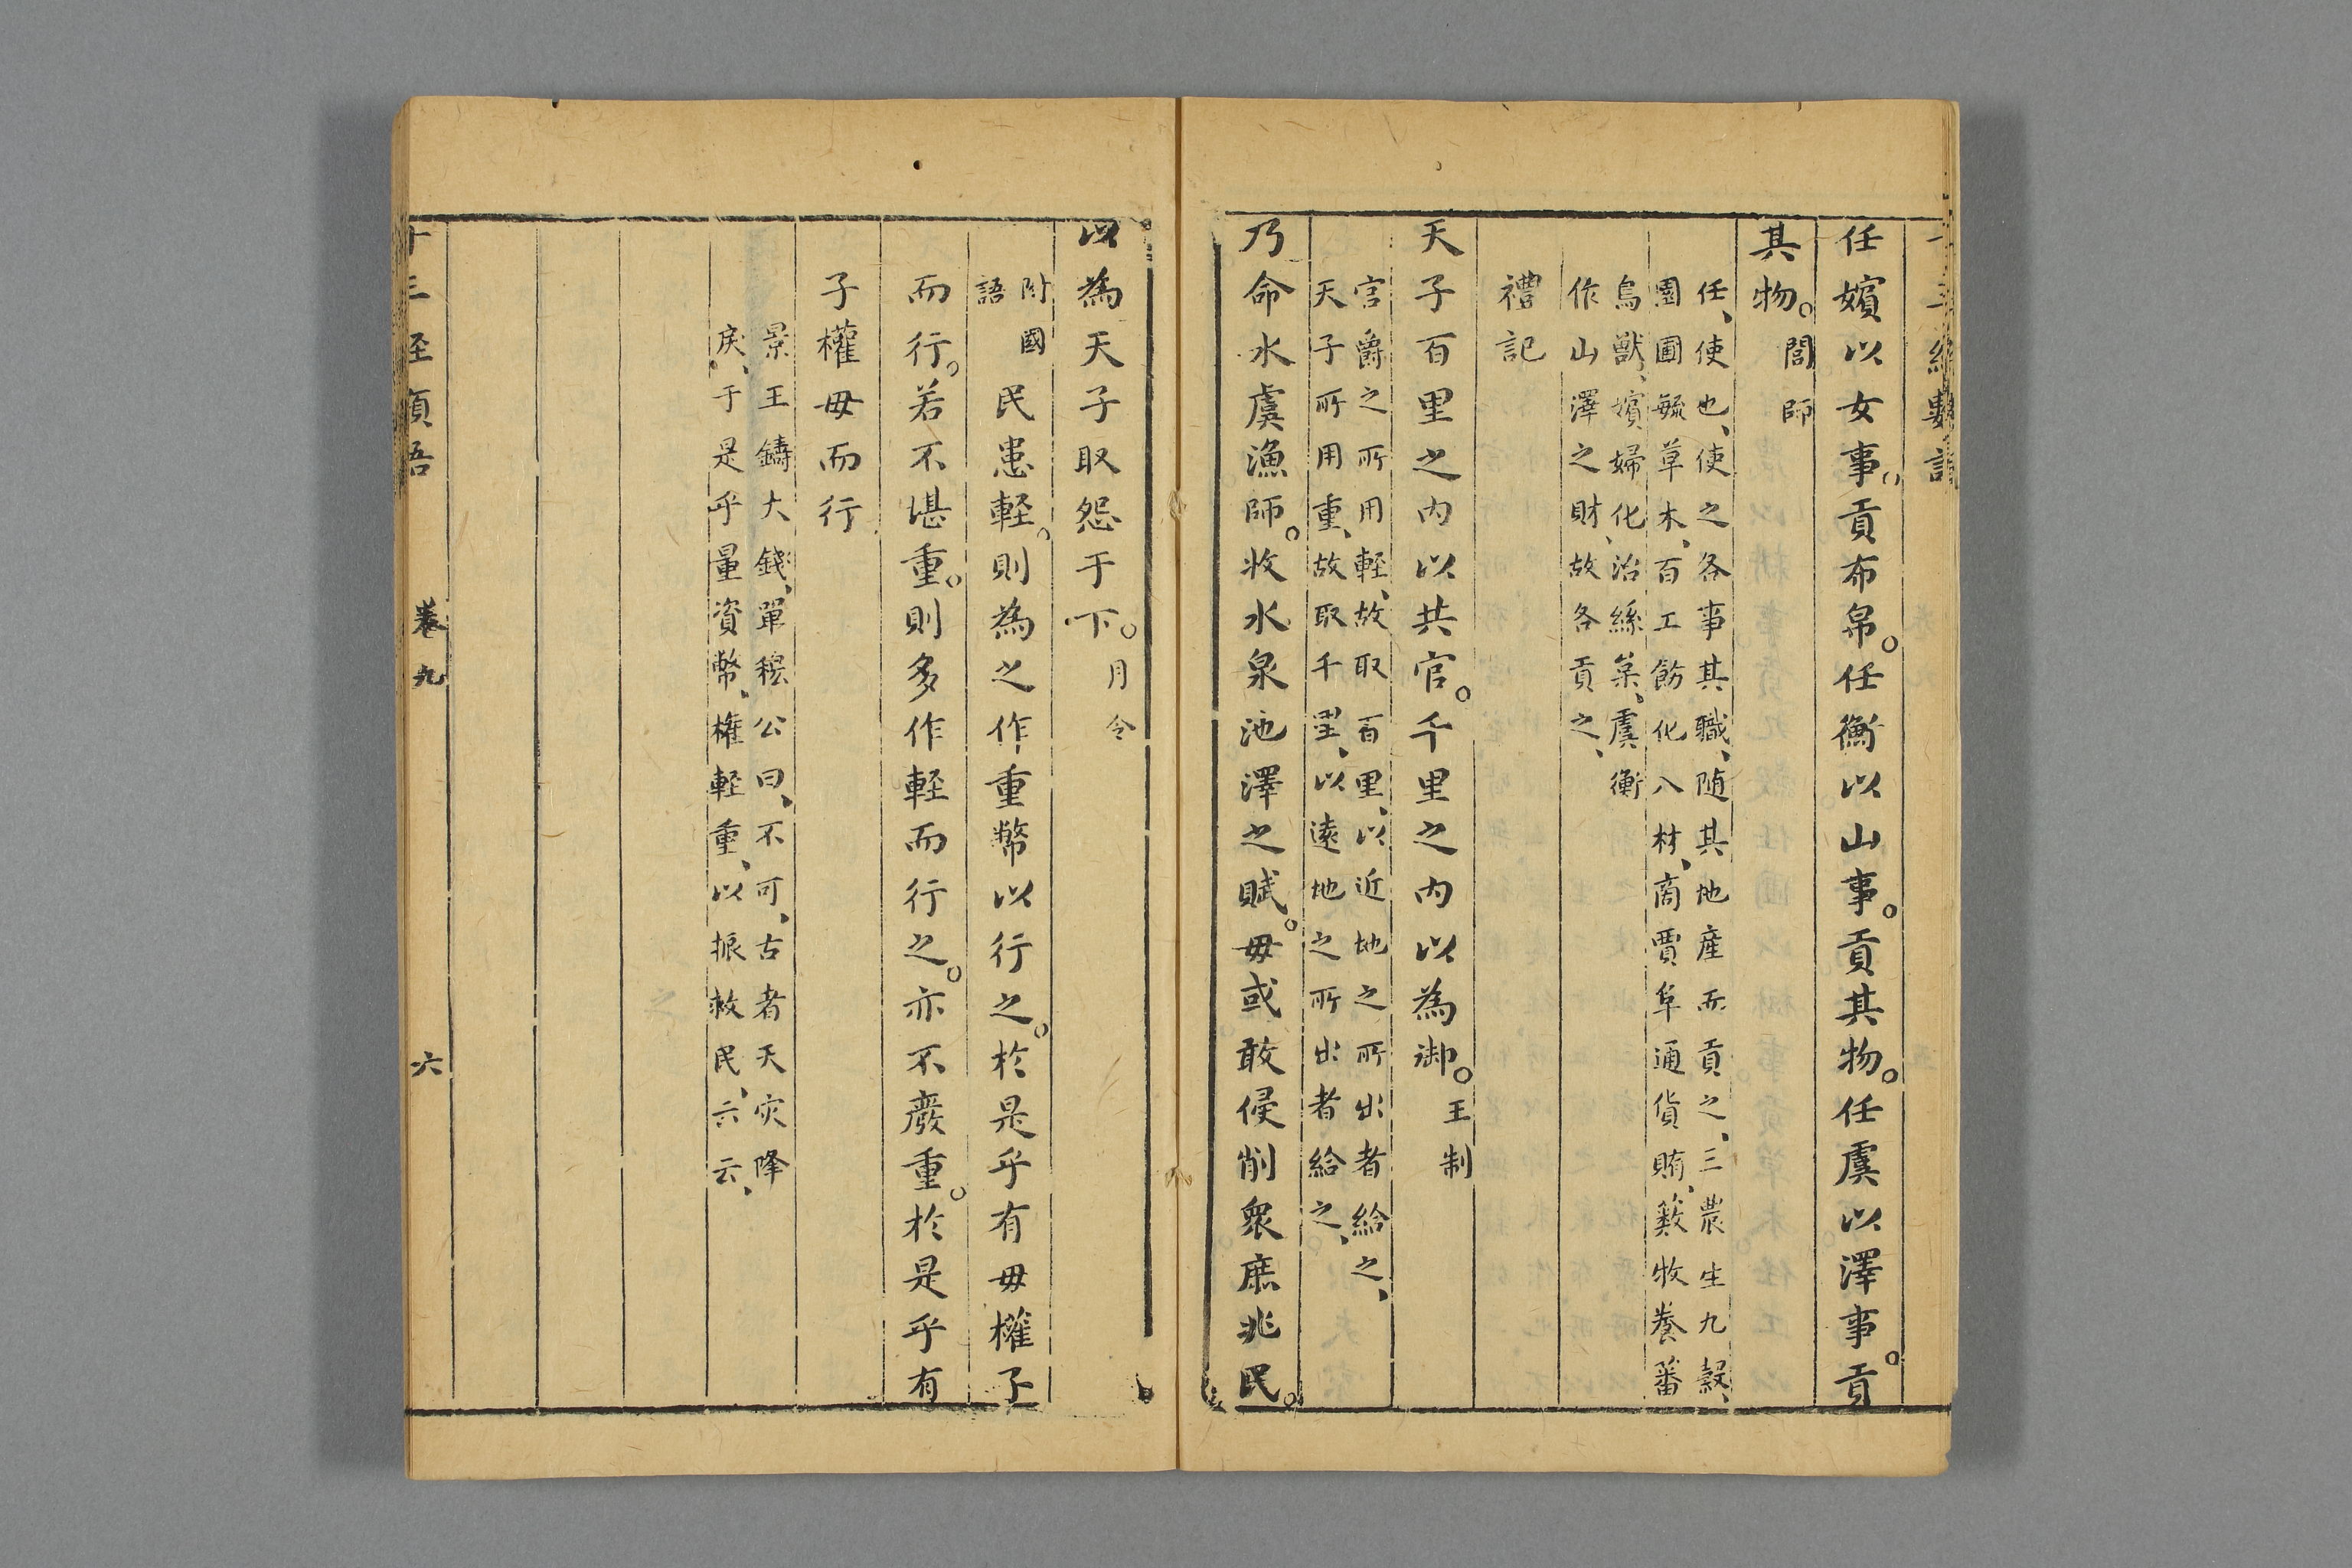 任嬪以女事。貢布帛。任衡以山事。貢其物。任虞以澤事。貢
其物。閭師
任、使也、使之各事其職、随其地産而貢之、三農生九穀、
園圃毓草木、百工飭化八材、商賈阜通貨賄、薮牧養蕃
鳥獸、嬪婦化治絲枲、虞衡
作山澤之財、故各貢之、
禮記
天子百里之内以共官。千里之内以為御。王制
官爵之所用輕、故取百里、以近地之所出者給之、
天子所用重、故取千里、以遠地之所出者給之、
乃命水虞漁師。收水泉池澤之賦。毋或敢侵削衆庶兆民。
以為天子取怨于下。月令
附國
語
民患輕。則為之作重幣以行之。於是乎有母權子
而行。若不堪重。則多作輕而行之。亦不廢重。於是乎有
子權母而行
景王鑄大錢、單穆公曰、不可、古者天灾降
戾、于是乎量資幣、權輕重、以振救民、云云、
卷九
六